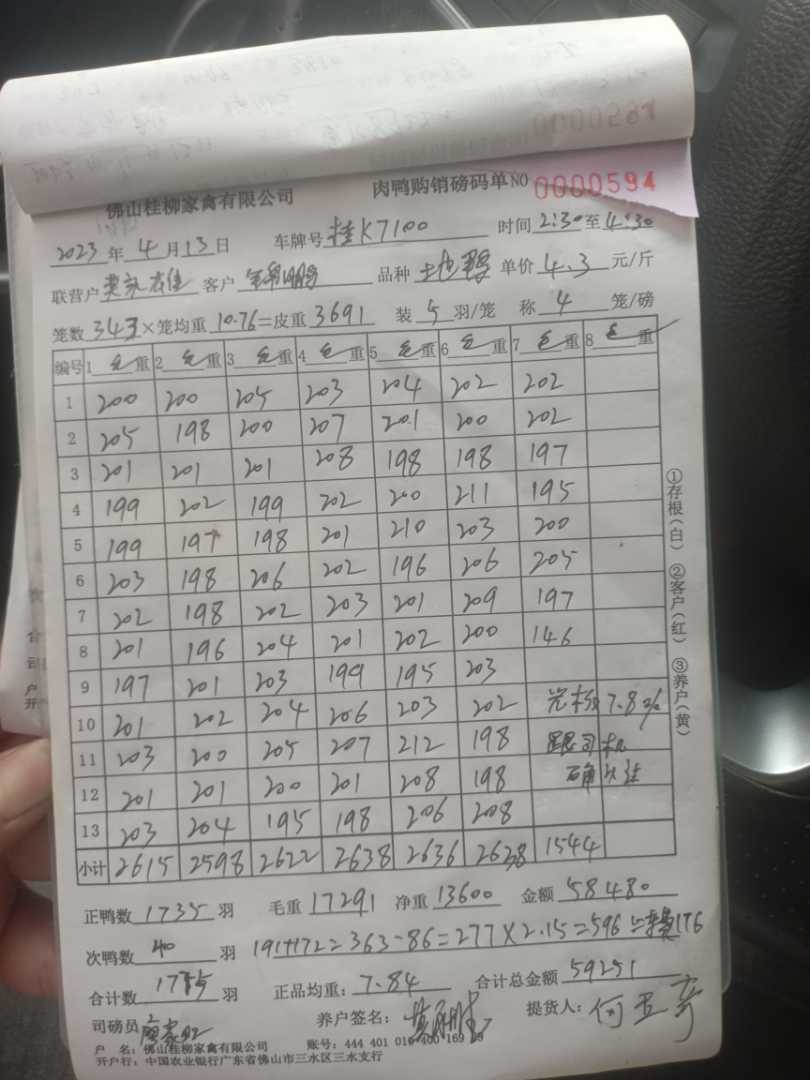 0000597
佛山桂柳家禽有限公司 肉鸭购销磅码单 NO 0000594
2023 年 4 月 13 日 车牌号 桂K7100 时间 2:30 至 4:30
联营户 客户 品种 土北鸭 单价 4.3 元/斤
笼数 343 ×笼均重 10.76 =皮重 3691 装 5 羽/笼 称 4 笼/磅
编号 1 毛 重 2 毛 重 3 毛 重 4 毛 重 5 毛 重 6 毛 重 7 毛 重 8 毛 重
1 200 200 205 203 204 202 202
2 205 198 200 207 201 200 202
3 201 201 201 208 198 198 197
4 199 202 199 202 200 211 195
5 199 197 198 201 210 203 200
6 203 198 206 202 196 206 205
7 202 198 202 203 201 209 197
8 201 196 204 201 202 200 146
9 197 201 203 199 195 203
10 201 202 204 206 203 202 7.8%
11 203 200 205 207 212 198 跟司机
12 201 201 200 201 208 198 确认过
13 203 204 195 198 206 208
小计 2615 2598 2622 2638 2636 2638 1544
正鸭数 1735 羽 毛重 17291 净重 13600 金额 58480
次鸭数 40 羽 191+172=363-86=277×2.15=596 176
合计数 1775 羽 正品均重: 7.84 合计总金额 59251
司磅员 养户签名: 提货人:
户 名:佛山桂柳家禽有限公司 账号: 444 401 010 400 169 29
开户行:中国农业银行广东省佛山市三水区三水支行
①存根(白) ②客户(红) ③养户(黄)